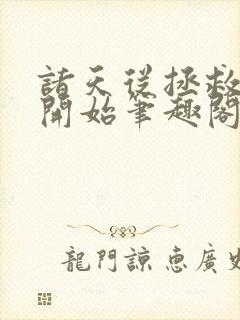 諸天從拯救
開始筆趣閣
龍門諒惠廣